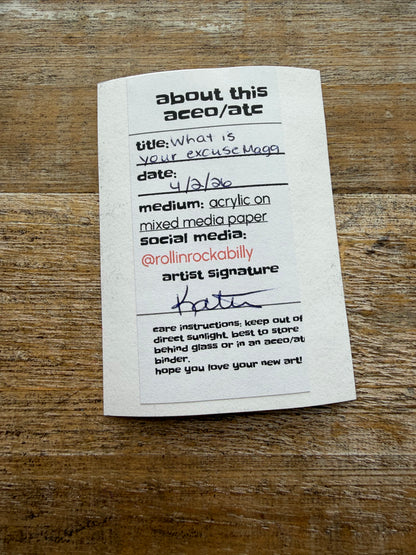 about this
aceo/atc
title: What is
your excuse Magg
date:
4/2/26
medium: acrylic on
mixed media paper
social media:
@rollinrockabilly
artist signature
care instructions: keep out of
direct sunlight. best to store
behind glass or in an aceo/at
binder.
hope you love your new art!